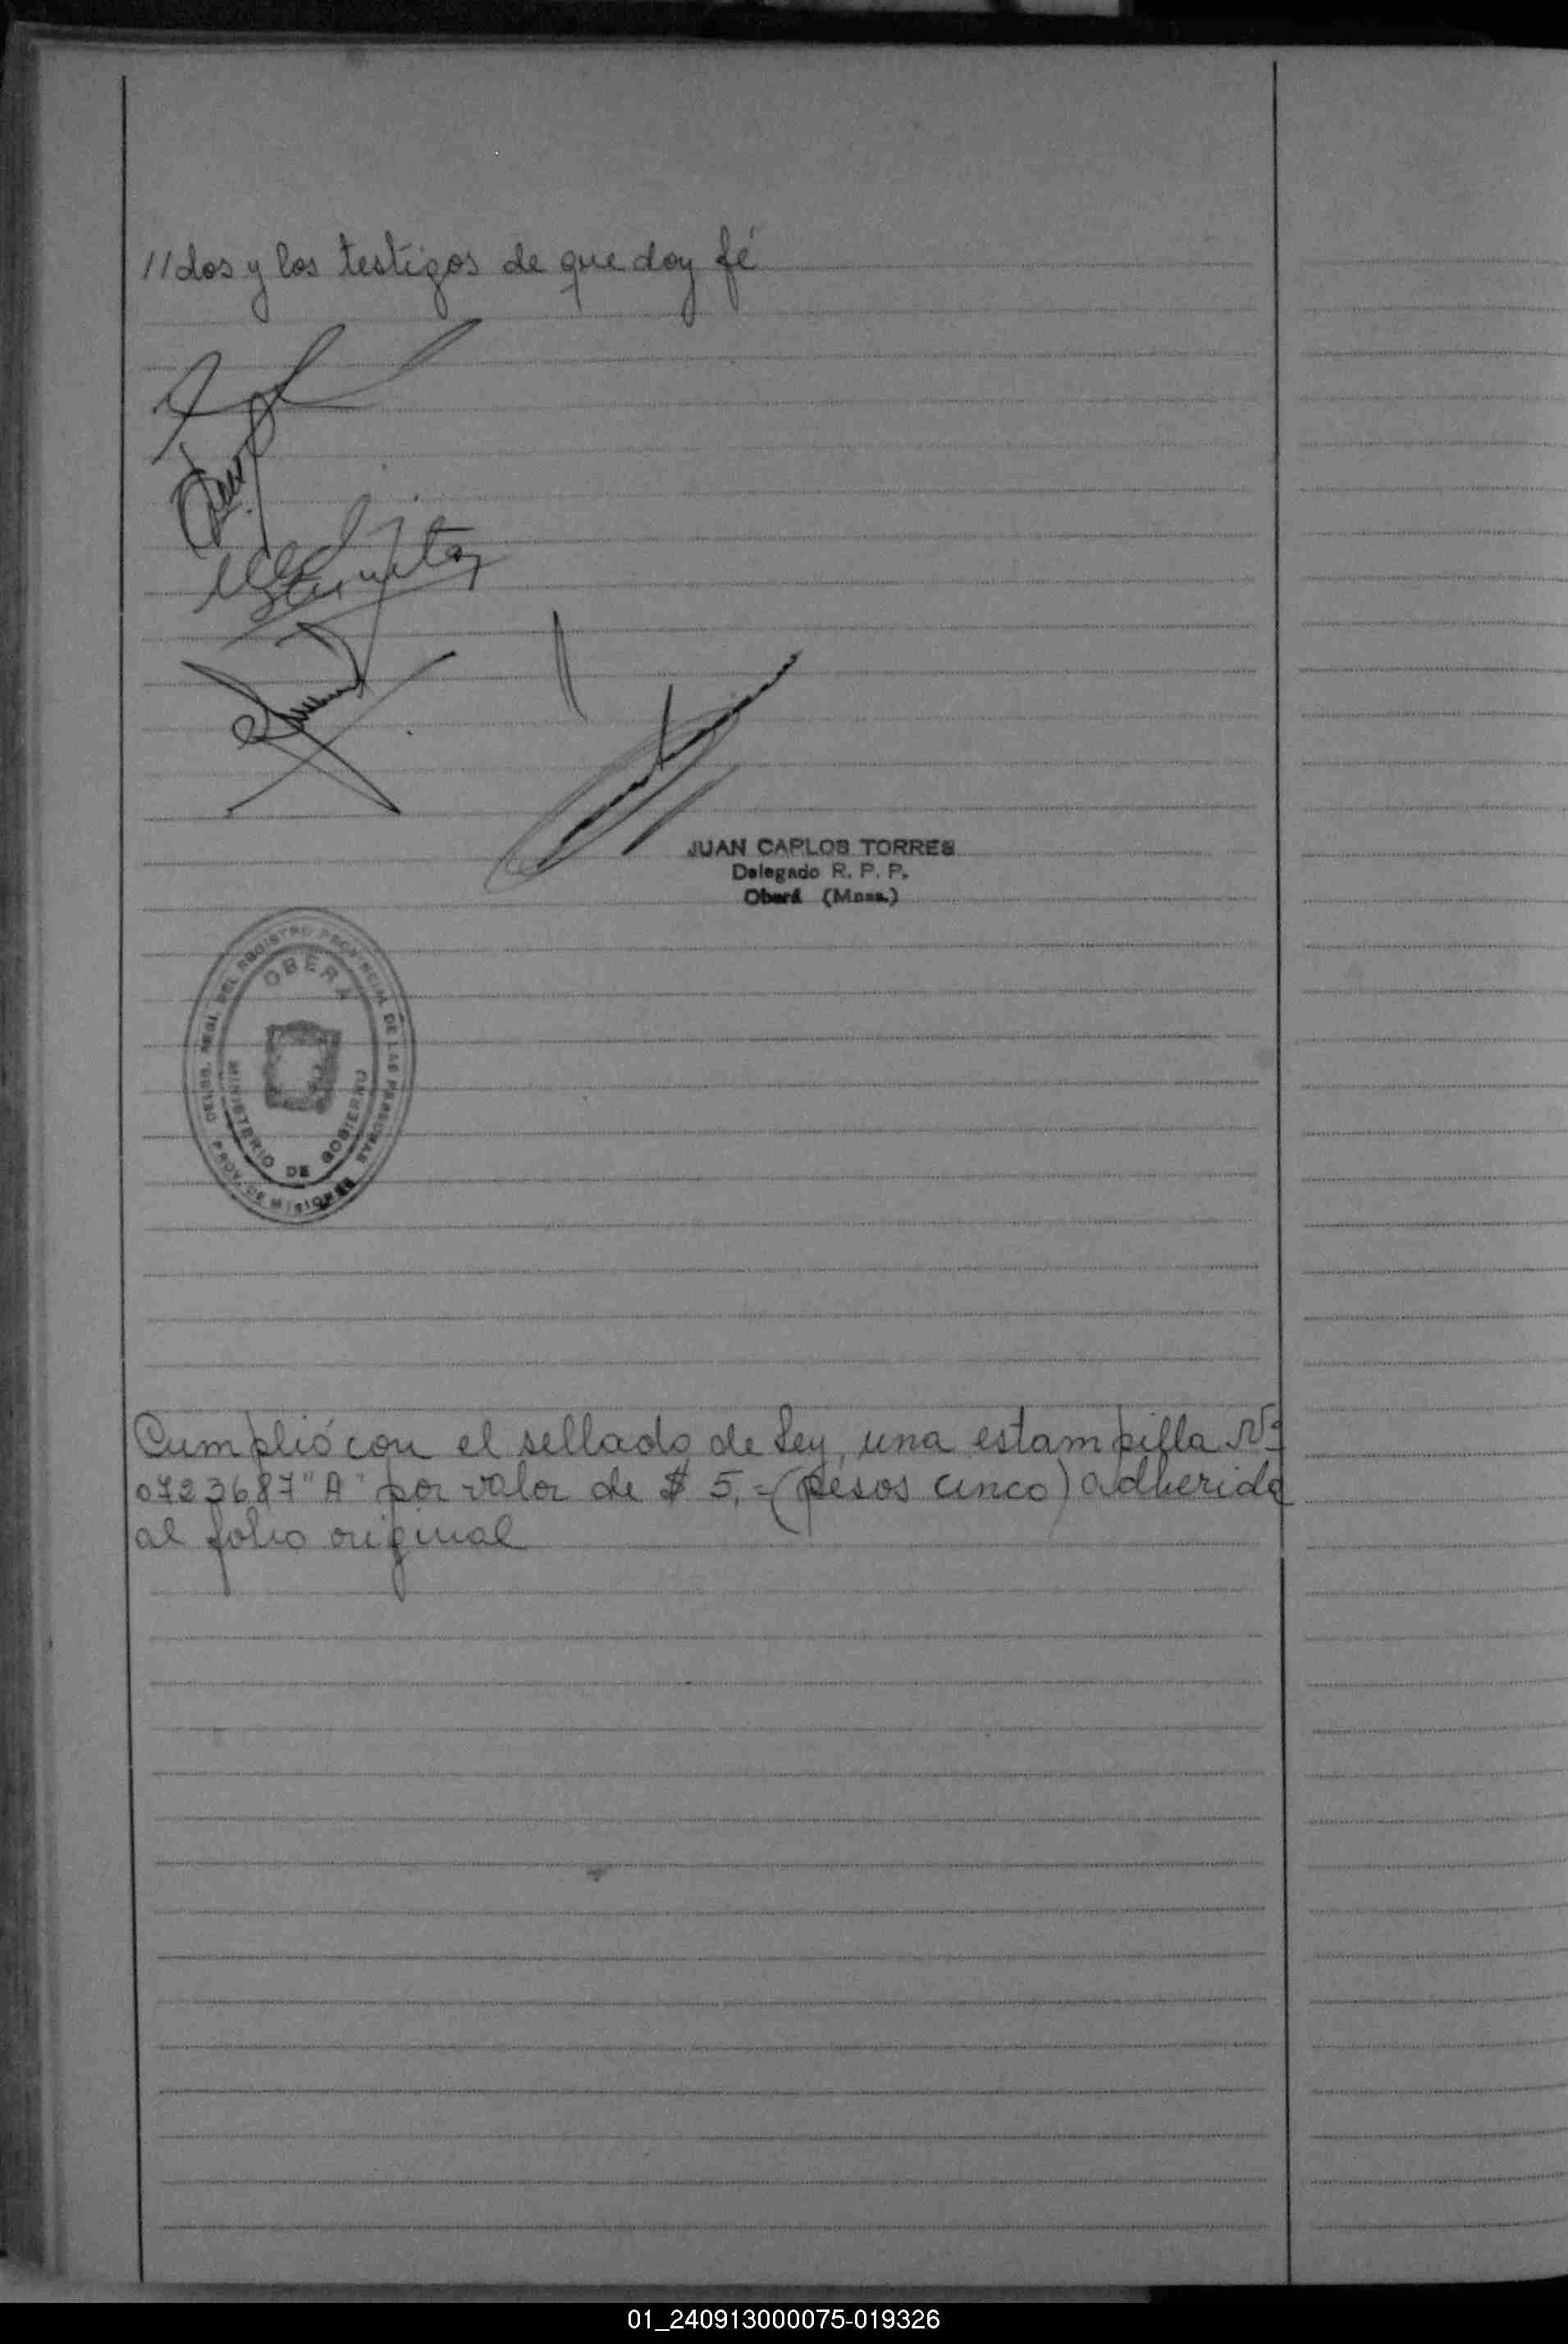 //dos y los testigos de que doy fé
JUAN CARLOS TORRES
Delegado R. P. P.
Oberá (Mnes.)
DELEG. REGL. DEL REGISTRO PROVINCIAL DE LAS PERSONAS
OBERA
MINISTERIO DE GOBIERNO
PROV. DE MISIONES
Cumplió con el sellado de Ley, una estampilla Nº
0723687 "A" por valor de $ 5,= (pesos cinco) adherida
al folio original
01_240913000075-019326